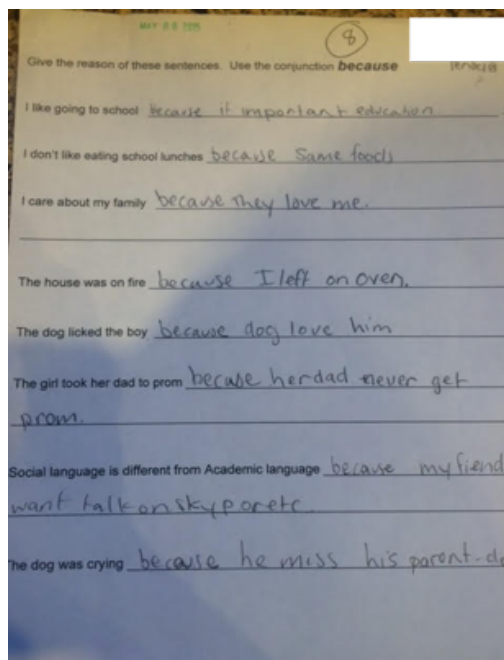 MAY 08 2015
8
Give the reason of these sentences. Use the conjunction because
I like going to school because it important education.
I don't like eating school lunches because same foods
I care about my family because they love me.
The house was on fire because I left on oven.
The dog licked the boy because dog love him
The girl took her dad to prom becuse her dad never get
prom.
Social language is different from Academic language because my fiend
want talk on skyp or etc.
he dog was crying because he miss his parent-do